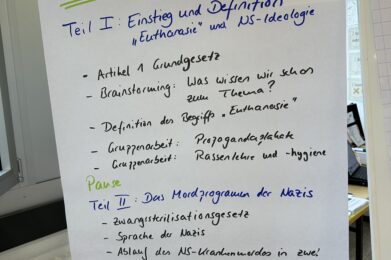 Teil I: Einstieg und Definition
„Euthanasie" und NS-Ideologie
- Artikel 1 Grundgesetz
- Brainstorming: Was wissen wir schon
zum Thema?
- Definition des Begriffs „Euthanasie"
- Gruppenarbeit: Propagandaplakate
- Gruppenarbeit: Rassenlehre und -hygiene
Pause
Teil II: Das Mordprogramm der Nazis
- Zwangssterilisationsgesetz
- Sprache der Nazis
- Ablauf des NS-Krankenmordes in zwei